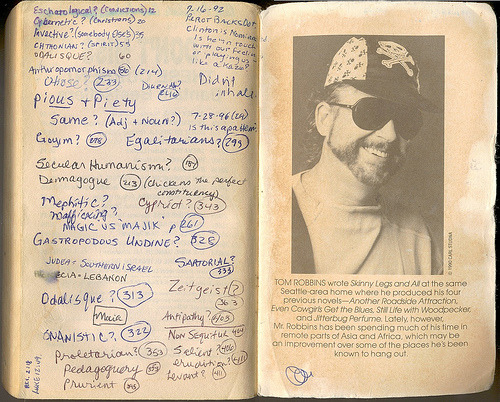 Eschatological? (Convictions) 12
Cybernetic? (Christians) 20
Invective? (Somebody Else's) 35
CHTHONIAN? (SPIRIT) 55
ODALISQUE? 60
Anthropomorphism 86 (214)
Obese? 233
246
pious + Piety
Same? (Adj + Noun?)
Goyim? 278 Egalitarians? 299
Secular Humanism? 187
Demagogue 213 (chickens the perfect
constituency)
Mephitic? Cypriot? 343
mafficking?
MAGIC VS MAJIK p 261
GASTROPODOUS UNDINE? 328
JUDEA = SOUTHERN ISRAEL
ECIA = LEBANON
SARTORIAL?
333
Odalisque? 313
Zeitgeist?
363
Maria
Antipathy? 403
ONANISTIC? 322
Non Sequitur 404
proletarian? 353
Salient 406
Pedagoguery
erudition? 411
Prurient
Levant? 411
LUKE 12:49
7-16-92
PEROT BACKS OUT
Clinton is Nominee
Is he in touch
with our feelin
or playing us
like a Kazoo?
Didn't
inhale
7-28-96 (24)
is this apathem
TOM ROBBINS wrote Skinny Legs and All at the same
Seattle-area home where he produced his four
previous novels—Another Roadside Attraction,
Even Cowgirls Get the Blues, Still Life with Woodpecker,
and Jitterbug Perfume. Lately, however,
Mr. Robbins has been spending much of his time in
remote parts of Asia and Africa, which may be
an improvement over some of the places he's been
known to hang out.